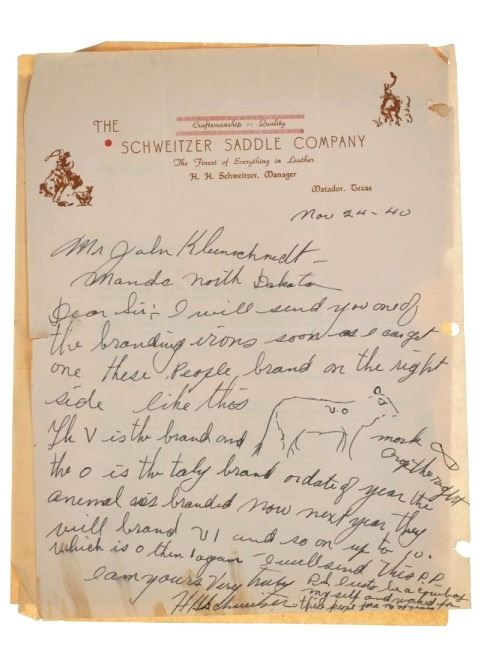 Craftsmanship - Quality
THE
SCHWEITZER SADDLE COMPANY
The Finest of Everything in Leather
H. H. Schweitzer, Manager
Matador, Texas
Nov 24-40
Mr John Kleinschmidt -
Manda North Dakota
Dear Sir:- I will send you one of
the branding irons soon as I can get
one these People, brand on the right
side like this
V O
The V is the brand and
mark on the right
the o is the taly brand or date of year the
animal is branded now next year they
will brand V1 and so on up to 10.
which is 0 then 1 again - I will send This P.P.
I am yours Very truly
HHSchweitzer
P.S. I use to be a cowboy
my self and worked for
this